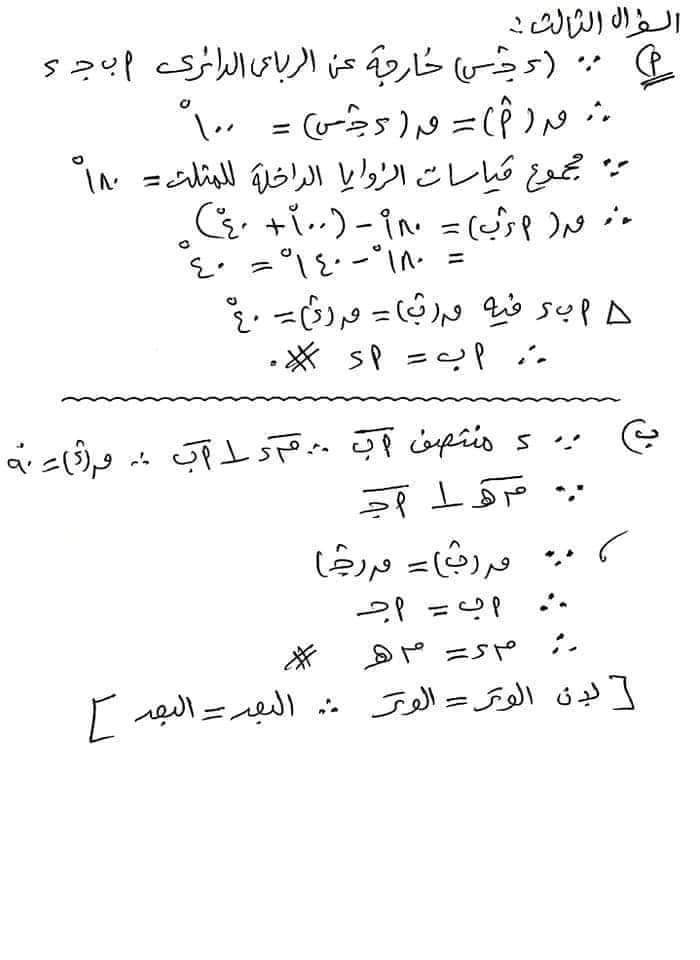 السؤال الثالث :
(أ) ∵ (د ج̂ س) خارجة عن الرباعى الدائرى أ ب ج د
∴ ق(أ̂) = ق(د ج̂ س) = ١٠٠°
∵ مجموع قياسات الزوايا الداخلة للمثلث = ١٨٠°
∴ ق(أ د̂ ب) = ١٨٠° − (١٠٠° + ٤٠°)
= ١٨٠° − ١٤٠° = ٤٠°
Δ أ ب د فيه ق(ب̂) = ق(د̂) = ٤٠°
∴ أ ب = أ د #
ب) ∵ د منتصف أب ∴ م د ⊥ أب ∴ ق(د̂) = ٩٠°
∵ م هـ ⊥ أ جـ
، ∵ ق(ب̂) = ق(جـ̂)
∴ أ ب = أ جـ
∴ م د = م هـ #
[ لأن الوتر = الوتر ∴ البعد = البعد ]